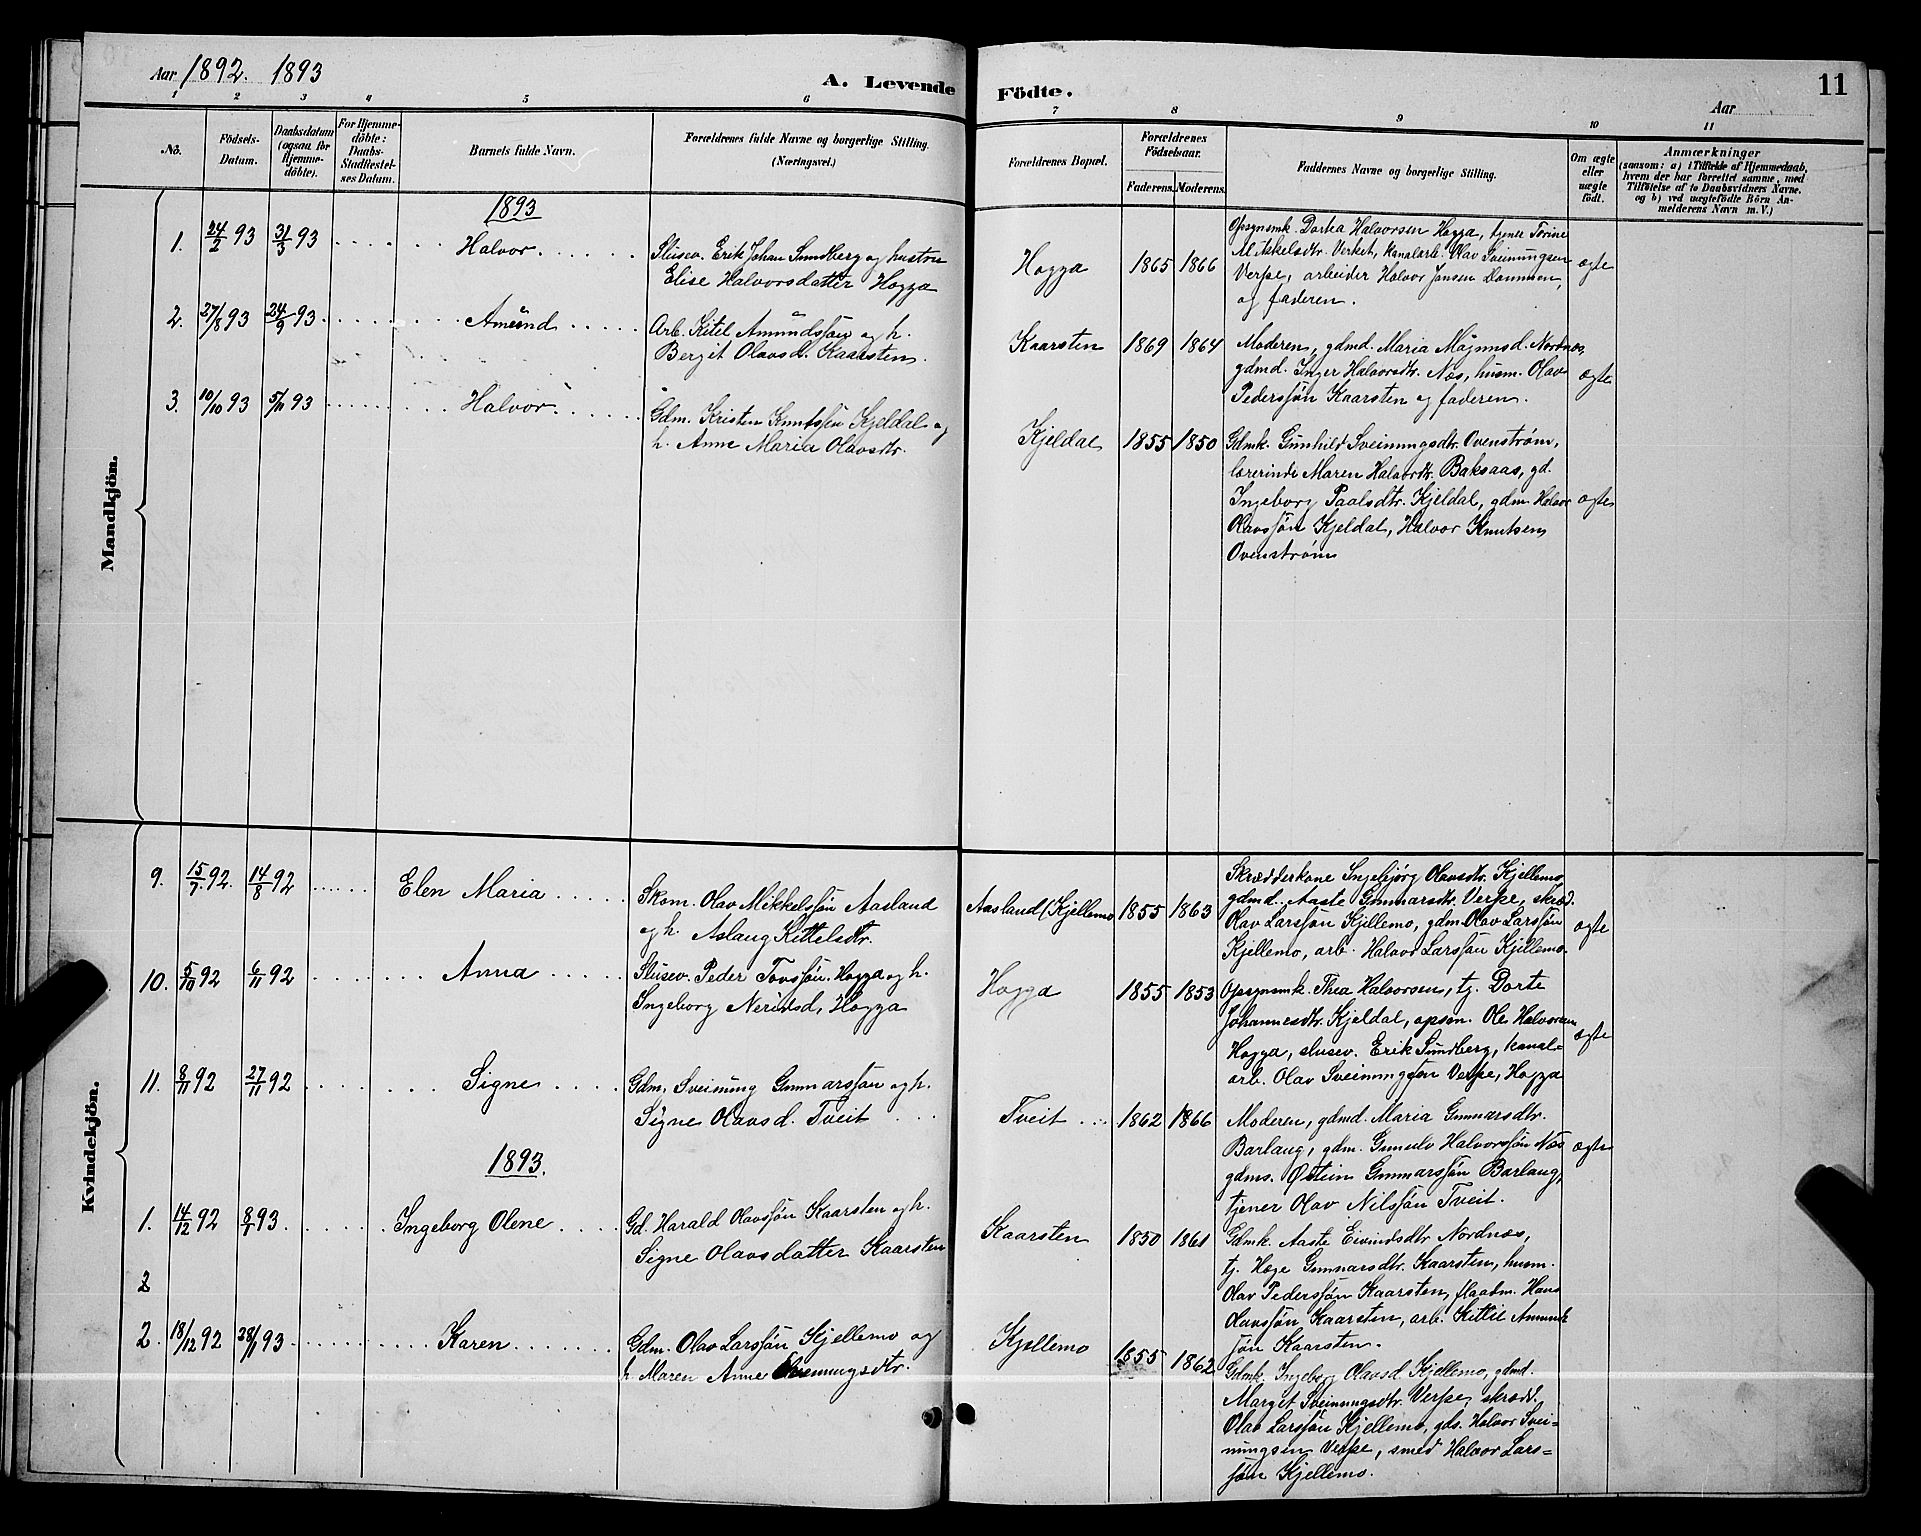 Aar 1892. 1893
A. Levende Födte.
Aar
11
1 2 3 4 5 6 7 8 9 10 11
No.
Födsels-Datum.
Daabsdatum (ogsaa for Hjemme-döbte).
For Hjemme-döbte: Daabs-Stadfæstel-ses Datum.
Barnets fulde Navn.
Forældrenes fulde Navne og borgerlige Stilling. (Næringsvei.)
Forældrenes Bopæl.
Forældrenes Födselsaar.
Faderens. Moderens.
Faddernes Navne og borgerlige Stilling.
Om ægte eller uægte födt.
Anmærkninger
(saasom: a) i Tilfælde af Hjemmedaab,
hvem der har forrettet samme, med
Tilföielse af to Daabsvidners Navne,
og b) ved uægtefödte Börn An-
melderens Navn m. V.)
Mandkjön.
1893
1. 24/2 93 31/3 93 Halvor
Slusev. Erik Johan Sundberg og hustru
Elise Halvorsdatter Hogga
Hogga 1865 1866
Opsynsmk. Dortea Halvorsen Hogga, tjener Torine
Mikkelsdtr. Verket, Kanalarb. Olav Sveinungsen
Verpe, arbeider Halvor Jansen Dammen,
og faderen.
ægte
2. 27/8 93 24/9 93 Amund
Arb. Kitel Amundssön og h.
Bergit Olavsd. Kaarsten.
Kaarsten 1869 1864
Moderen, gdmd. Maria Magnusd. Nordnæs,
gdmd. Inger Halvorsdtr. Næs, husm. Olav
Pederssön Kaarsten og faderen.
ægte
3. 10/10 93 5/11 93 Halvor
Gdm. Kristen Knutssön Kjeldal og
h. Anne Maria Olavsdtr.
Kjeldal 1855 1850
Gdmk. Gunhild Sveinungsdtr. Ovenstrøm,
lærerinde Maren Halvordtr. Baksaas, gd.
Ingeborg Paalsdtr. Kjeldal, gdm. Halvor
Olavssön Kjeldal, Halvor Knutsen
Ovenstrøm
ægte
Kvindekjön.
9. 15/7 92. 14/8 92 Elen Maria
Skom. Olav Mikkelsön Aasland
og h. Aslaug Kittelsdtr.
Aasland (Kjellemo 1855 1863
Skrædderkone Ingebjørg Olavsdtr. Kjellemo,
gdmd. Aaste Gunnarsdtr. Verpe, skræd.
Olav Larssön Kjellemo, gdm. Olav Larssön
Kjellemo, arb. Halvor Larssön Kjellemo.
ægte
10. 5/10 92 6/11 92 Anna
Slusev. Peder Tovssön Hogga og h.
Ingeborg Neridsd, Hogga
Hogga 1855 1853
Opsynsmk. Thea Halvorsen, tj. Dorte
Johannesdtr. Kjeldal, opsm. Ole Halvorsen
Hogga, slusev. Erik Sundberg, kanal-
arb. Olav Sveinungson Verpe, Hogga
ægte
11. 8/11 92 27/11 92 Signe
Gdm. Sveinung Gunnarssön og h.
Signe Olavsd. Tveit
Tveit 1862 1866
Moderen, gdmd. Maria Gunnarsdtr.
Barlaug, gdm. Gunulv Halvorssön Næs
gdms. Østein Gunnarssön Barlaug,
tjener Olav Nilssön Tveit.
ægte
1893.
1. 14/12 92 8/1 93. Ingeborg Olene
Gd. Harald Olavssön Kaarsten og h.
Signe Olavsdatter Kaarsten
Kaarsten 1850 1861
Gdmk. Aaste Eivindsdtr Nordnæs,
tj. Hæge Gunnarsdtr. Kaarsten, husm.
Olav Pederssön Kaarsten, Hans
Olavssön Kaarsten, arb. Kittil Amund
søn Kaarsten.
2
2. 18/12 92 28/1 93 Karen
Gdm. Olav Larssön Kjellemo og
h. Maren Anne Sveinungsdtr.
Kjellemo 1855 1862
Gdmk. Ingeborg Olavsd. Kjellemo, gdmd.
Marget Sveinungsdtr. Verpe, skrædd.
Olav Larssön Kjellemo, gds. Halvor Svei-
nungsen Verpe, smed Halvor Lars-
søn Kjellemo.